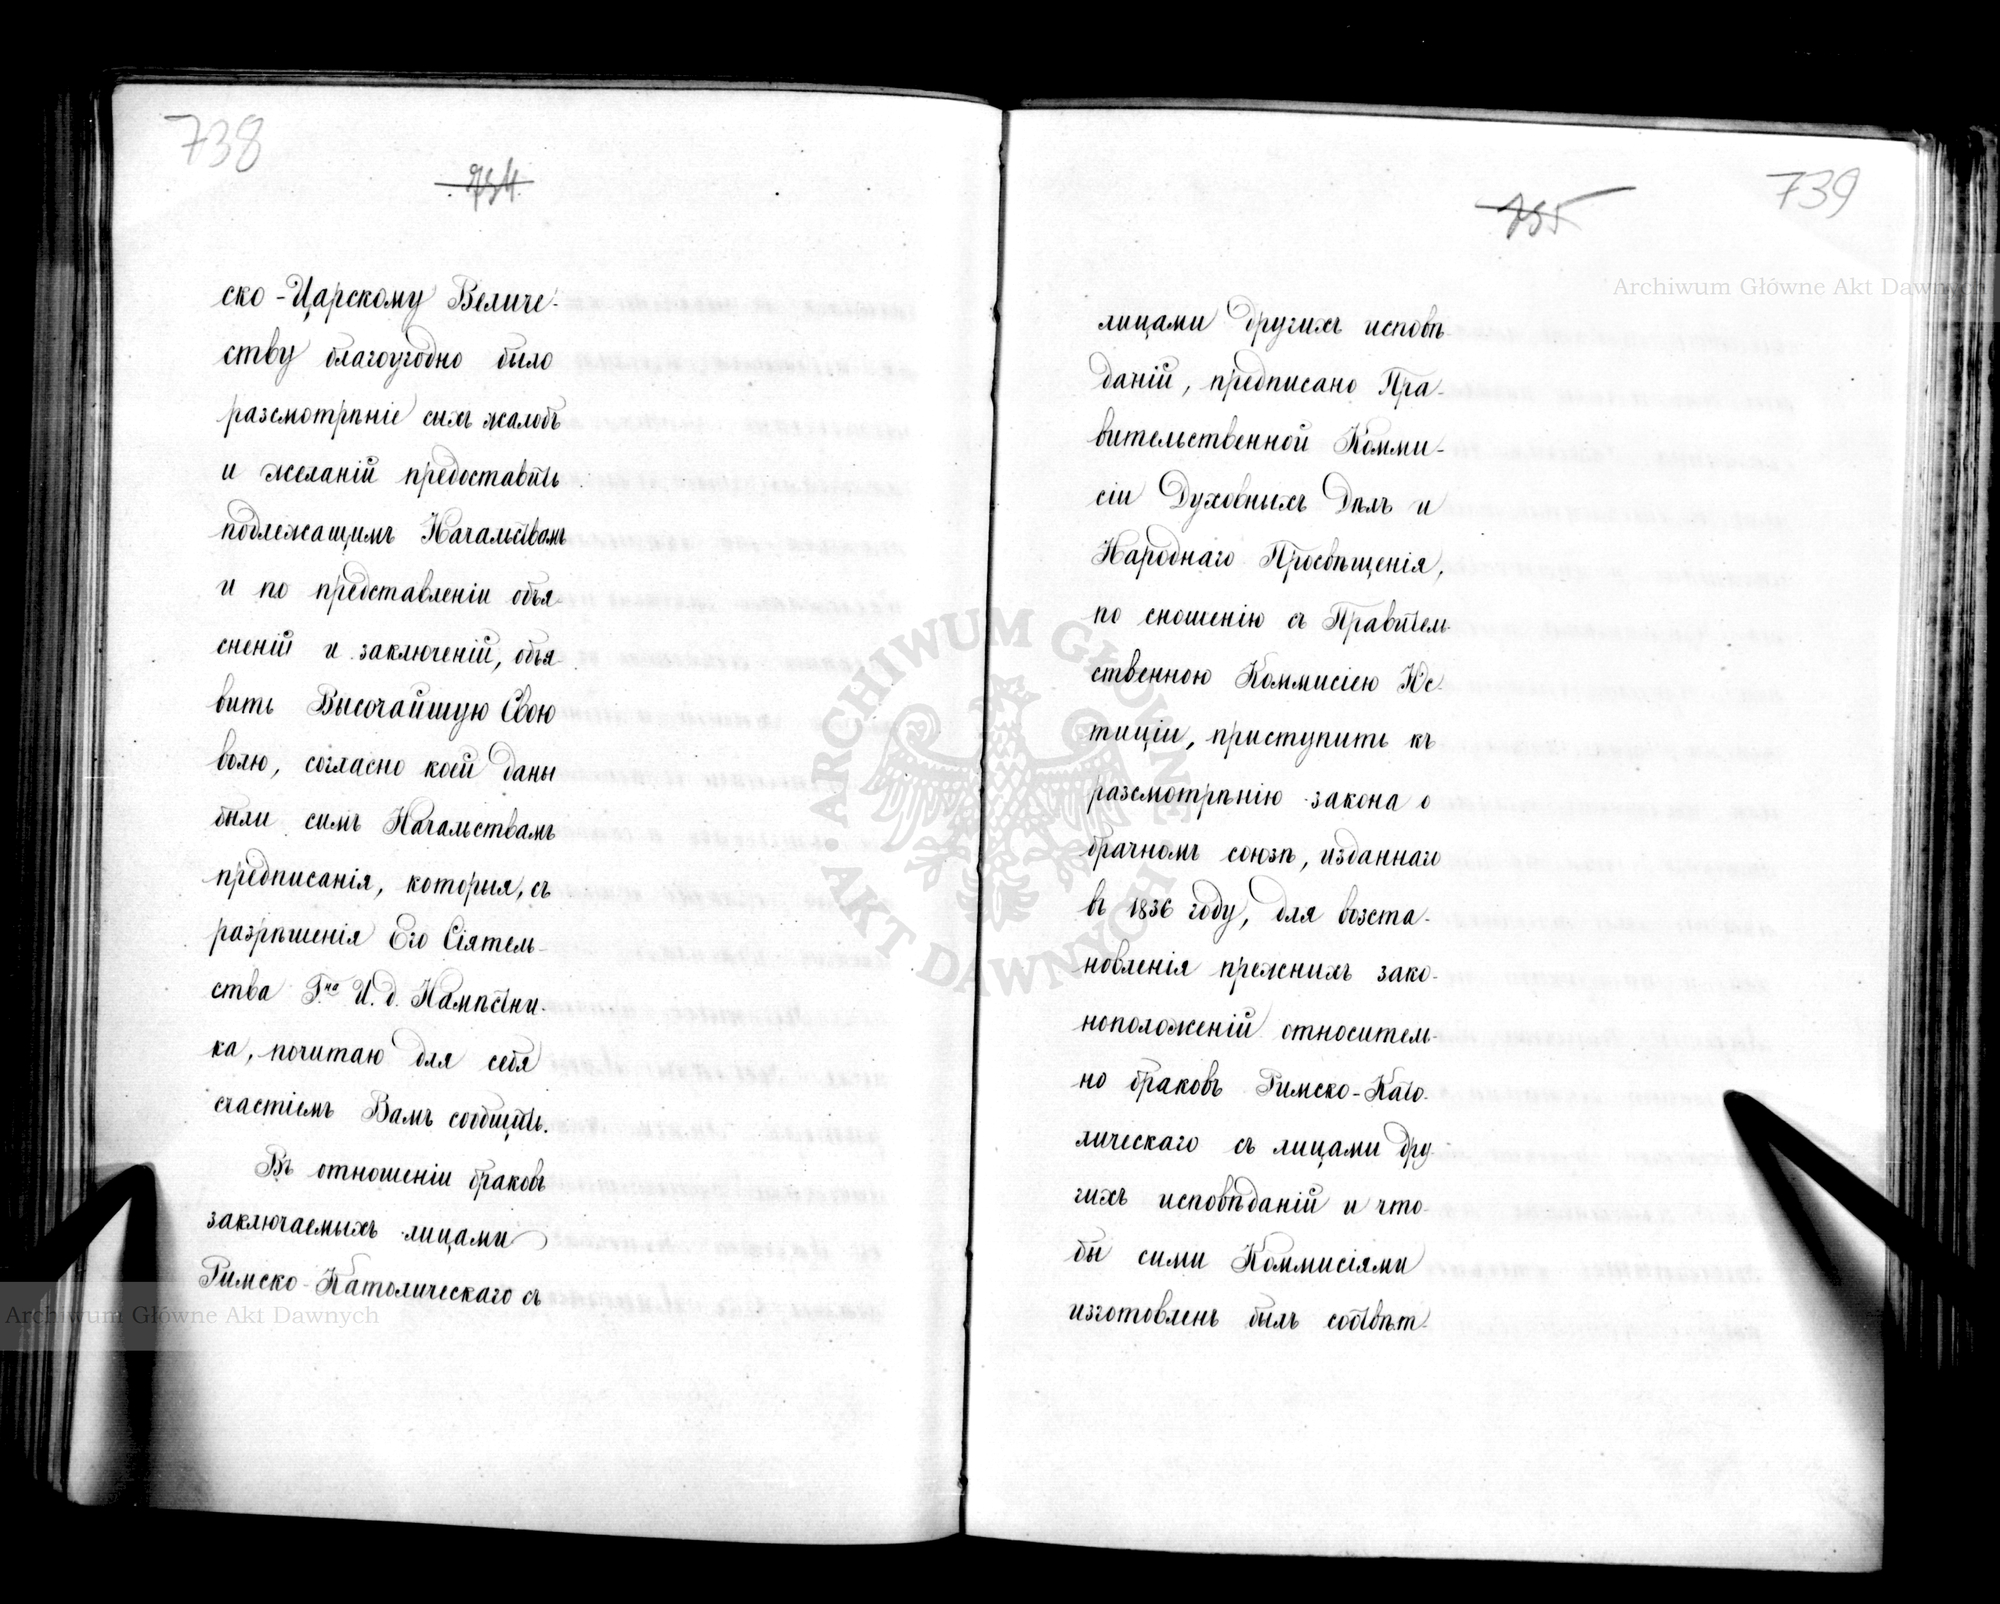 738
734
ско-Царскому Величе-
ству благоугодно было
разсмотрѣніе сихъ жалобъ
и желаній предоставить
подлежащимъ Начальствамъ
и по представленіи объя-
сненій и заключеній, объя
вить Высочайшую Свою
волю, согласно коей даны
были симъ Начальствамъ
предписанія, которыя, съ
разрѣшенія Его Сіятель-
ства Г.на И. д. Намѣстни-
ка, почитаю для себя
счастіемъ Вамъ сообщить.
Въ отношеніи браковъ
заключаемыхъ лицами
Римско-Католическаго съ
739
735
лицами другихъ исповѣ-
даній, предписано Пра-
вительственной Комми-
сіи Духовныхъ Дѣлъ и
Народнаго Просвѣщенія,
по сношенію съ Правитель-
ственною Коммисіею Юс-
тиціи, приступить къ
разсмотрѣнію закона о
брачномъ союзѣ, изданнаго
въ 1836 году, для возста-
новленія прежнихъ зако-
ноположеній относитель-
но браковъ Римско-Като-
лическаго съ лицами дру-
гихъ исповѣданій и что-
бы сими Коммисіями
изготовленъ былъ соотвѣт-
Archiwum Główne Akt Dawnych
ARCHIWUM GŁÓWNE AKT DAWNYCH
Archiwum Główne Akt Dawnych